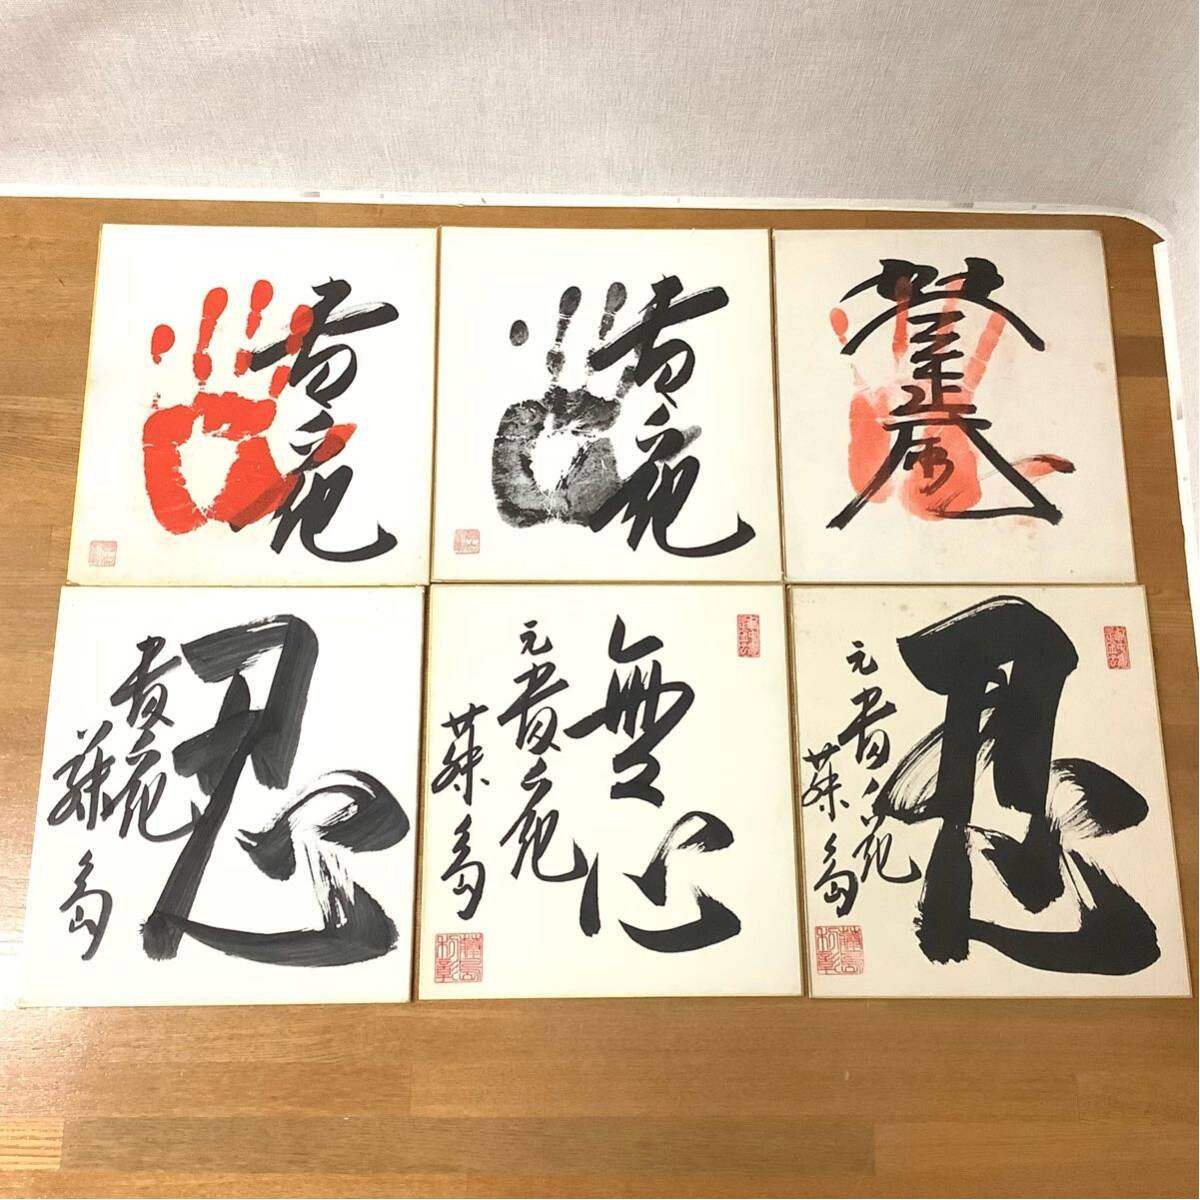 貴ノ花
貴ノ花
忍
貴ノ花
藤島
無心
元貴ノ花
藤島
忍
元貴ノ花
藤島